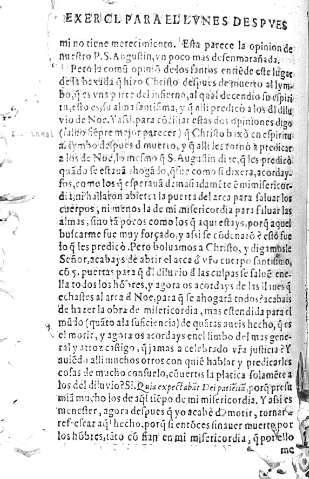 EXERCI. PARA EL LVNES DESPVES
mi no tiene merecimiento. Esta parece la opinion de
nuestro P. S. Augustin, vn poco mas desenmarañada.
Pero la comũ opiniõ de los santos entiẽde este lugar
de la baxada q̃ hizo Christo despues de muerto al lym-
bo, q̃ es vna parte del infierno, al qual decendio su espiri
tu, esto es, su alma santissima, y q̃ alli predicò a los del dilu
vio de Noe. Y assi para cõciliar estas dos opiniones digo
(salvo siẽpre mejor parecer) q̃ Christo bixò en espiritu
al lymbo despues d̃ muerto, y q̃ alli les tornò a predicar
a los de Noe, lo mesmo q̃ S. Augustin dize, q̃ les predicò
quãdo se estauã ahogãdo, q̃ fue como si dixera, acorday-
ros, como los q̃ esperauã demasiadamẽte ẽ mi misericor-
dia, ni hallaron abierta la puerta del arca para saluar los
cuerpos, ni menos la de mi misericordia para saluar las
almas, sino tã pocos como los q̃ aqui estays, porq̃ aquel
buscarme fue muy forçado, y assi se cõdenarõ ẽ esto fue
lo q̃ les predicò. Pero boluamos a Christo, y digamosle
Señor, acabays de abrir el arca d̃ vr̃o cuerpo santissimo,
cõ puertas para q̃ d̃l diluuio d̃ las culpas se saluẽ ene-
lla todos los hõbres, y agora os acordays de las llaues q̃
echastes al arca d̃ Noe, para q̃ se ahogarã todos? acabais
de hazer la obra de misericordia, mas estendida para el
mũdo (quãto a la suficiencia) de quãtas aueis hecho, q̃ es
el morir, y agora os acordays en el limbo del mas gene-
ral y atroz castigo, q̃ jamas a celebrado vr̃a justicia? Y
auiẽdo alli muchos otros con quiẽ hablar y predicarles
cosas de mucho consuelo, cõuertis la platica solamẽte a
los del diluvio? Si. Quia expectabãt Dei patiẽtiã, porq̃ presu
miã mucho los de aq̃l tiẽpo de mi misericordia. Y assi es
menester, agora despues q̃ yo acabè d̃ morir, tornar a
refrescar aq̃l hecho, porq̃ si entõces sin auer muerto por
los hõbres, tãto cõfiarõ en mi misericordia, q̃ por ello
me